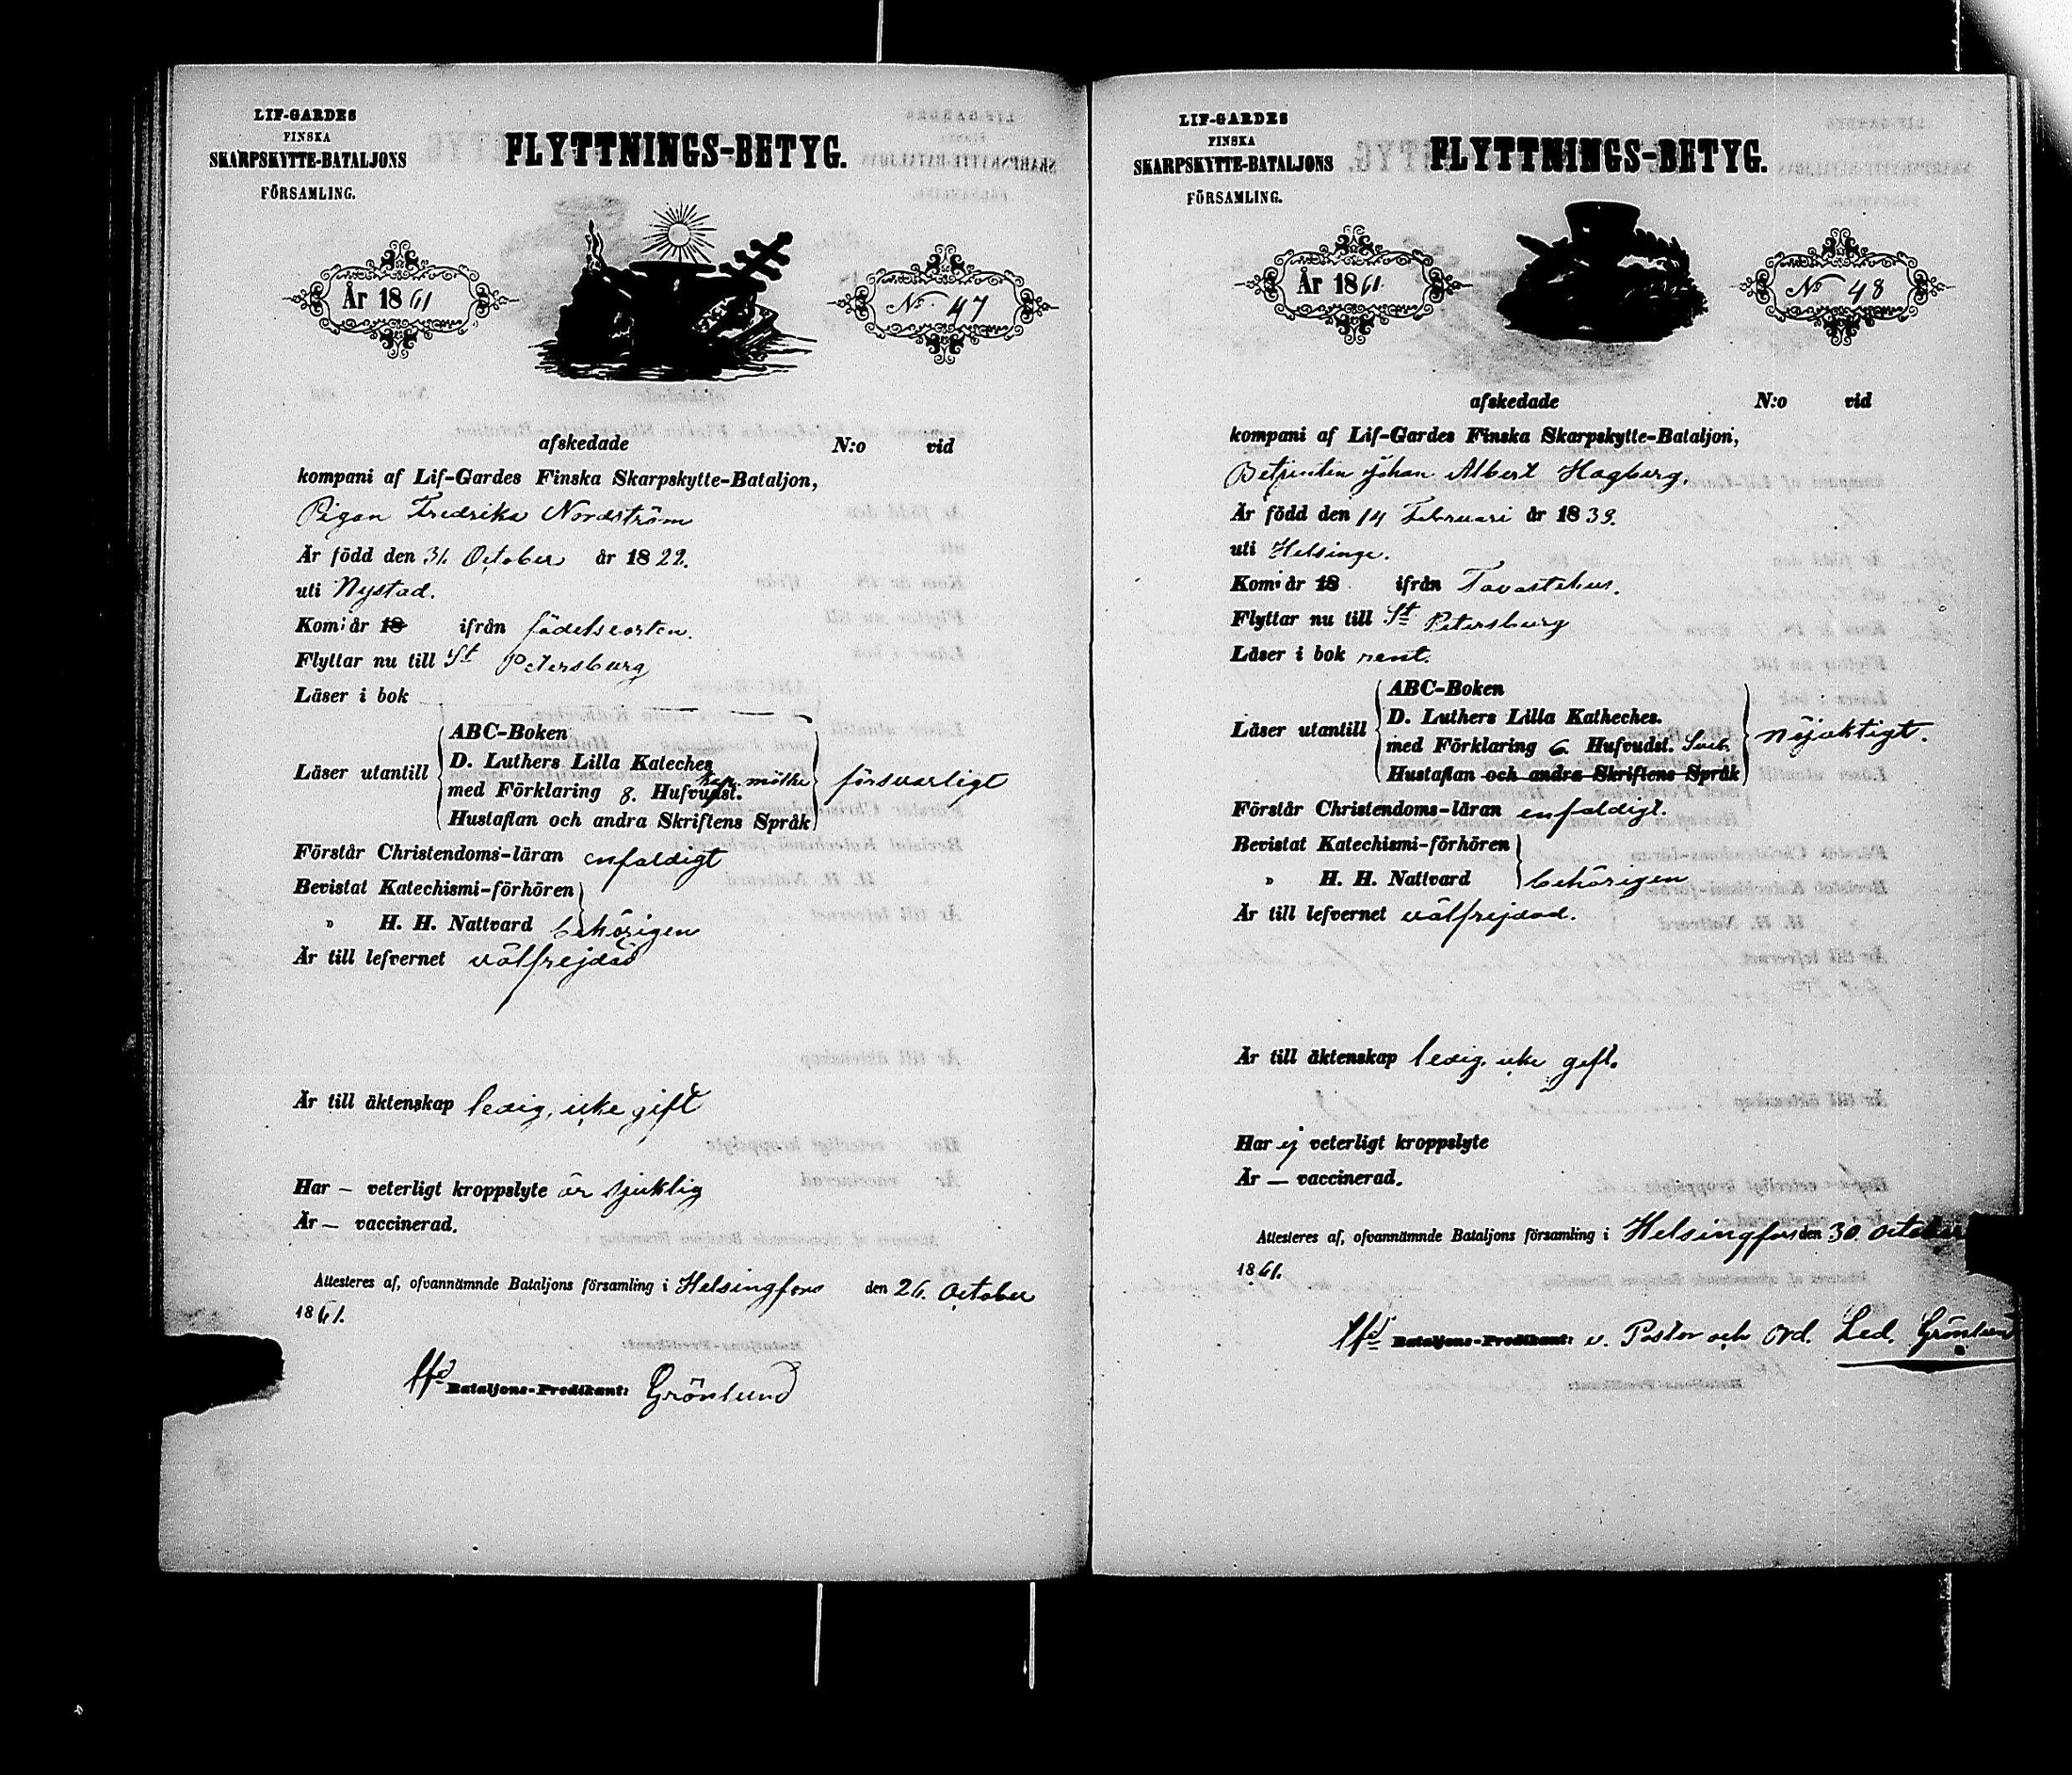 LIF-GARDES
FINSKA
SKARPSKYTTE-BATALJONS
FÖRSAMLING.
FLYTTNINGS-BETYG.
År 1861
No. 47
afskedade N:o vid
kompani af Lif-Gardes Finska Skarpskytte-Bataljon,
Pigan Fredrika Nordström
Är född den 31. October år 1822.
uti Nystad.
Kom: år 18 ifrån födelseorten.
Flyttar nu till St Petersburg
Läser i bok
Läser utantill
ABC-Boken
D. Luthers Lilla Kateches
med Förklaring 8. Hufvudst.
Hustaflan och andra Skriftens Språk
försvarligt
Förstår Christendoms-läran enfaldigt
Bevistat Katechismi-förhören
» H. H. Nattvard behörigen
Är till lefvernet välfrejdad
Är till äktenskap ledig, icke gift
Har – veterligt kroppslyte är sjuklig
Är – vaccinerad.
Attesteres af, ofvannämnde Bataljons församling i Helsingfors den 26. October
1861.
Bataljons-Predikant: Grönlund
LIF-GARDES
FINSKA
SKARPSKYTTE-BATALJONS
FÖRSAMLING.
FLYTTNINGS-BETYG.
År 1861.
No 48
afskedade N:o vid
kompani af Lif-Gardes Finska Skarpskytte-Bataljon,
Betjenten Johan Albert Hagberg.
Är född den 14 Februari år 1839.
uti Helsinge.
Kom: år 18 ifrån Tavastehus.
Flyttar nu till St Petersburg
Läser i bok rent.
Läser utantill
ABC-Boken
D. Luthers Lilla Katheches.
med Förklaring 6. Hufvudst. Sveb.
Hustaflan och andra Skriftens Språk
nöjaktigt.
Förstår Christendoms-läran enfaldigt.
Bevistat Katechismi-förhören
» H. H. Nattvard behörigen
Är till lefvernet välfrejdad.
Är till äktenskap ledig, icke gift.
Har ej veterligt kroppslyte
Är — vaccinerad.
Attesteres af, ofvannämnde Bataljons församling i Helsingfors den 30. October
1861.
Bataljons-Predikant: v. Pastor och Ord. Led. Grönlund